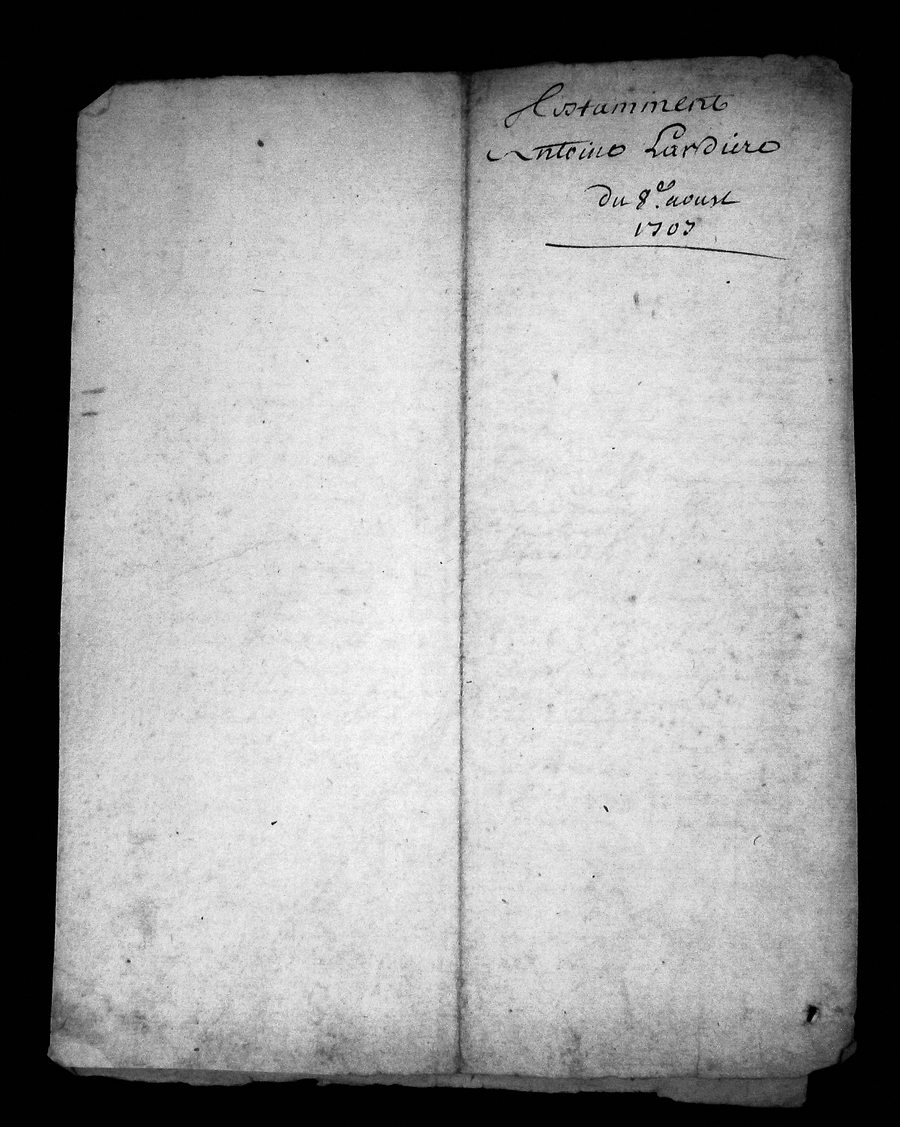 Testamment
Antoine Lardiere
du 8e. aoust
1707